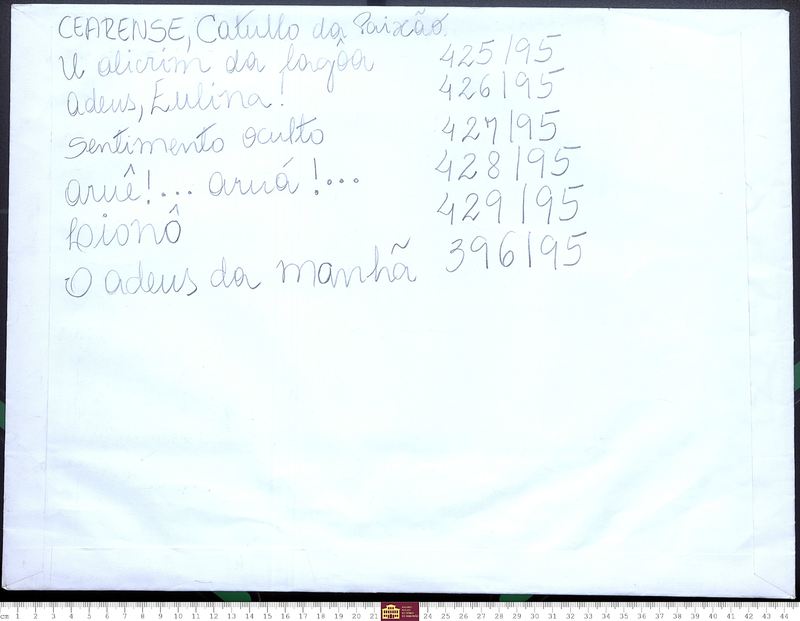 CEARENSE, Catullo da Paixão.
U alicrim da lagôa 425/95
adeus, Eulina! 426/95
Sentimento oculto 427/95
aruê!... aruá!... 428/95
Loionô 429/95
O adeus da manhã 396/95
cm 1 2 3 4 5 6 7 8 9 10 11 12 13 14 15 16 17 18 19 20 21 24 25 26 27 28 29 30 31 32 33 34 35 36 37 38 39 40 41 42 43 44